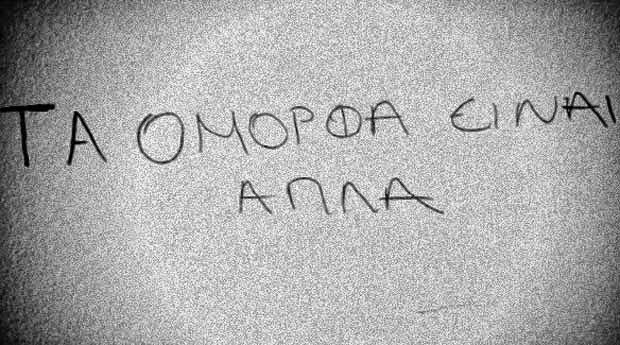 ΤΑ ΟΜΟΡΦΑ ΕΙΝΑΙ
ΑΠΛΑ